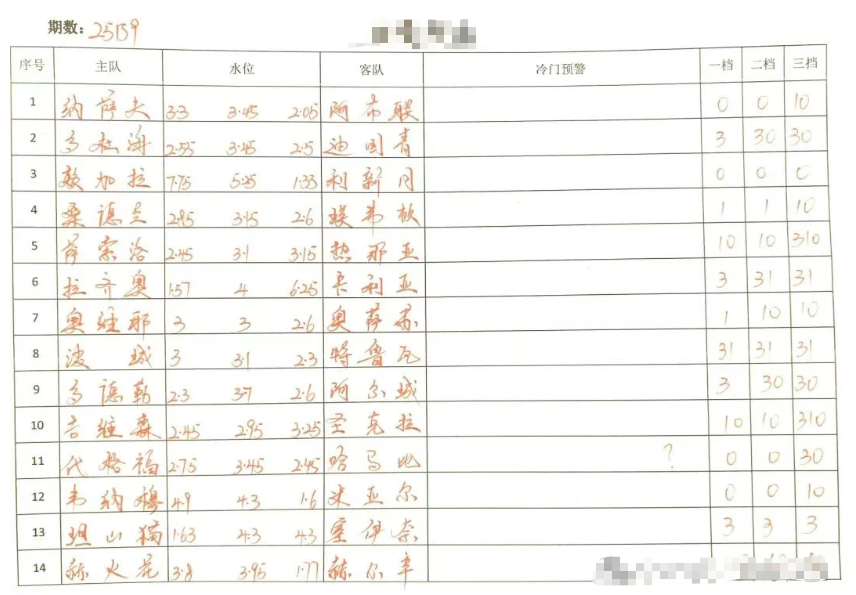 期数: 25159
序号 主队 水位 客队 冷门预警 一档 二档 三挡
1 纳萨夫 3.3 3.45 2.05 阿布联 0 0 10
2 多杜海 2.55 3.45 2.5 迪国青 3 30 30
3 敖加拉 7.75 5.25 1.33 利新月 0 0 0
4 桑德兰 2.85 3.15 2.6 埃弗顿 1 1 10
5 萨索洛 2.45 3.1 3.15 热那亚 10 10 310
6 拉齐奥 1.57 4 6.25 卡利亚 3 31 31
7 奥维耶 3 3 2.6 奥萨苏 1 10 10
8 波城 3 3.1 2.3 特鲁瓦 31 31 31
9 多德勒 2.3 3.7 2.6 阿尔城 3 30 30
10 吉维森 2.45 2.95 3.25 圣克拉 10 10 310
11 代格福 2.75 3.45 2.45 哈马比 ? 0 0 30
12 韦纳穆 4.9 4.3 1.6 米亚尔 0 0 10
13 坦山猫 1.63 4.3 4.3 塞伊奈 3 3 3
14 赫火花 3.8 3.95 1.77 赫尔辛